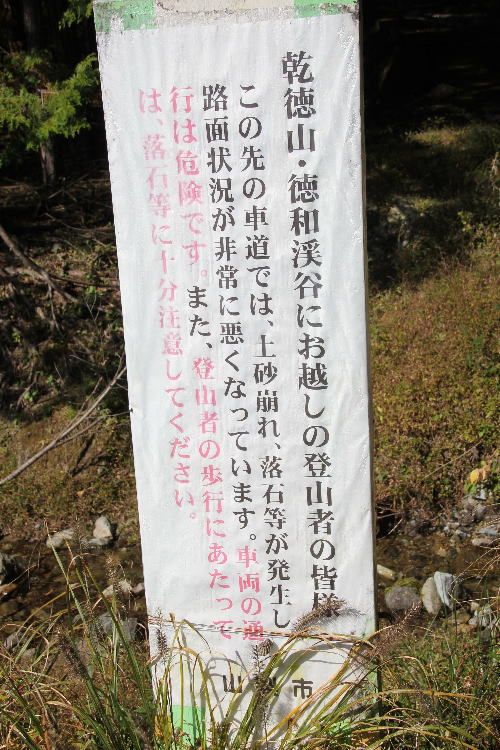 乾徳山・徳和渓谷にお越しの登山者の皆様
この先の車道では、土砂崩れ、落石等が発生し
路面状況が非常に悪くなっています。車両の通
行は危険です。また、登山者の歩行にあたって
は、落石等に十分注意してください。
山梨市